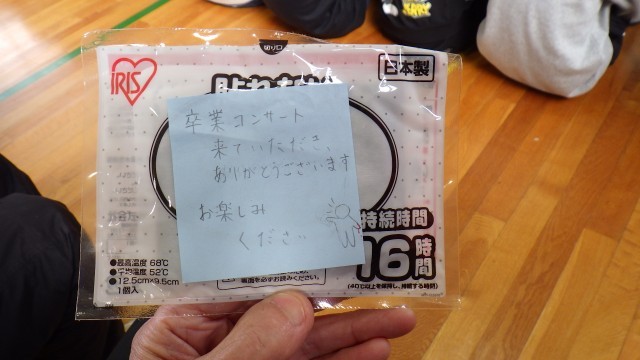 切り口
IRIS
日本製
卒業コンサート
来ていただき、
ありがとうございます
お楽しみ
ください
持続時間
16時間
(40℃以上を維持し、持続する時間)
●最高温度 68℃
●平均温度 52℃
●12.5cm×9.5cm
1個入